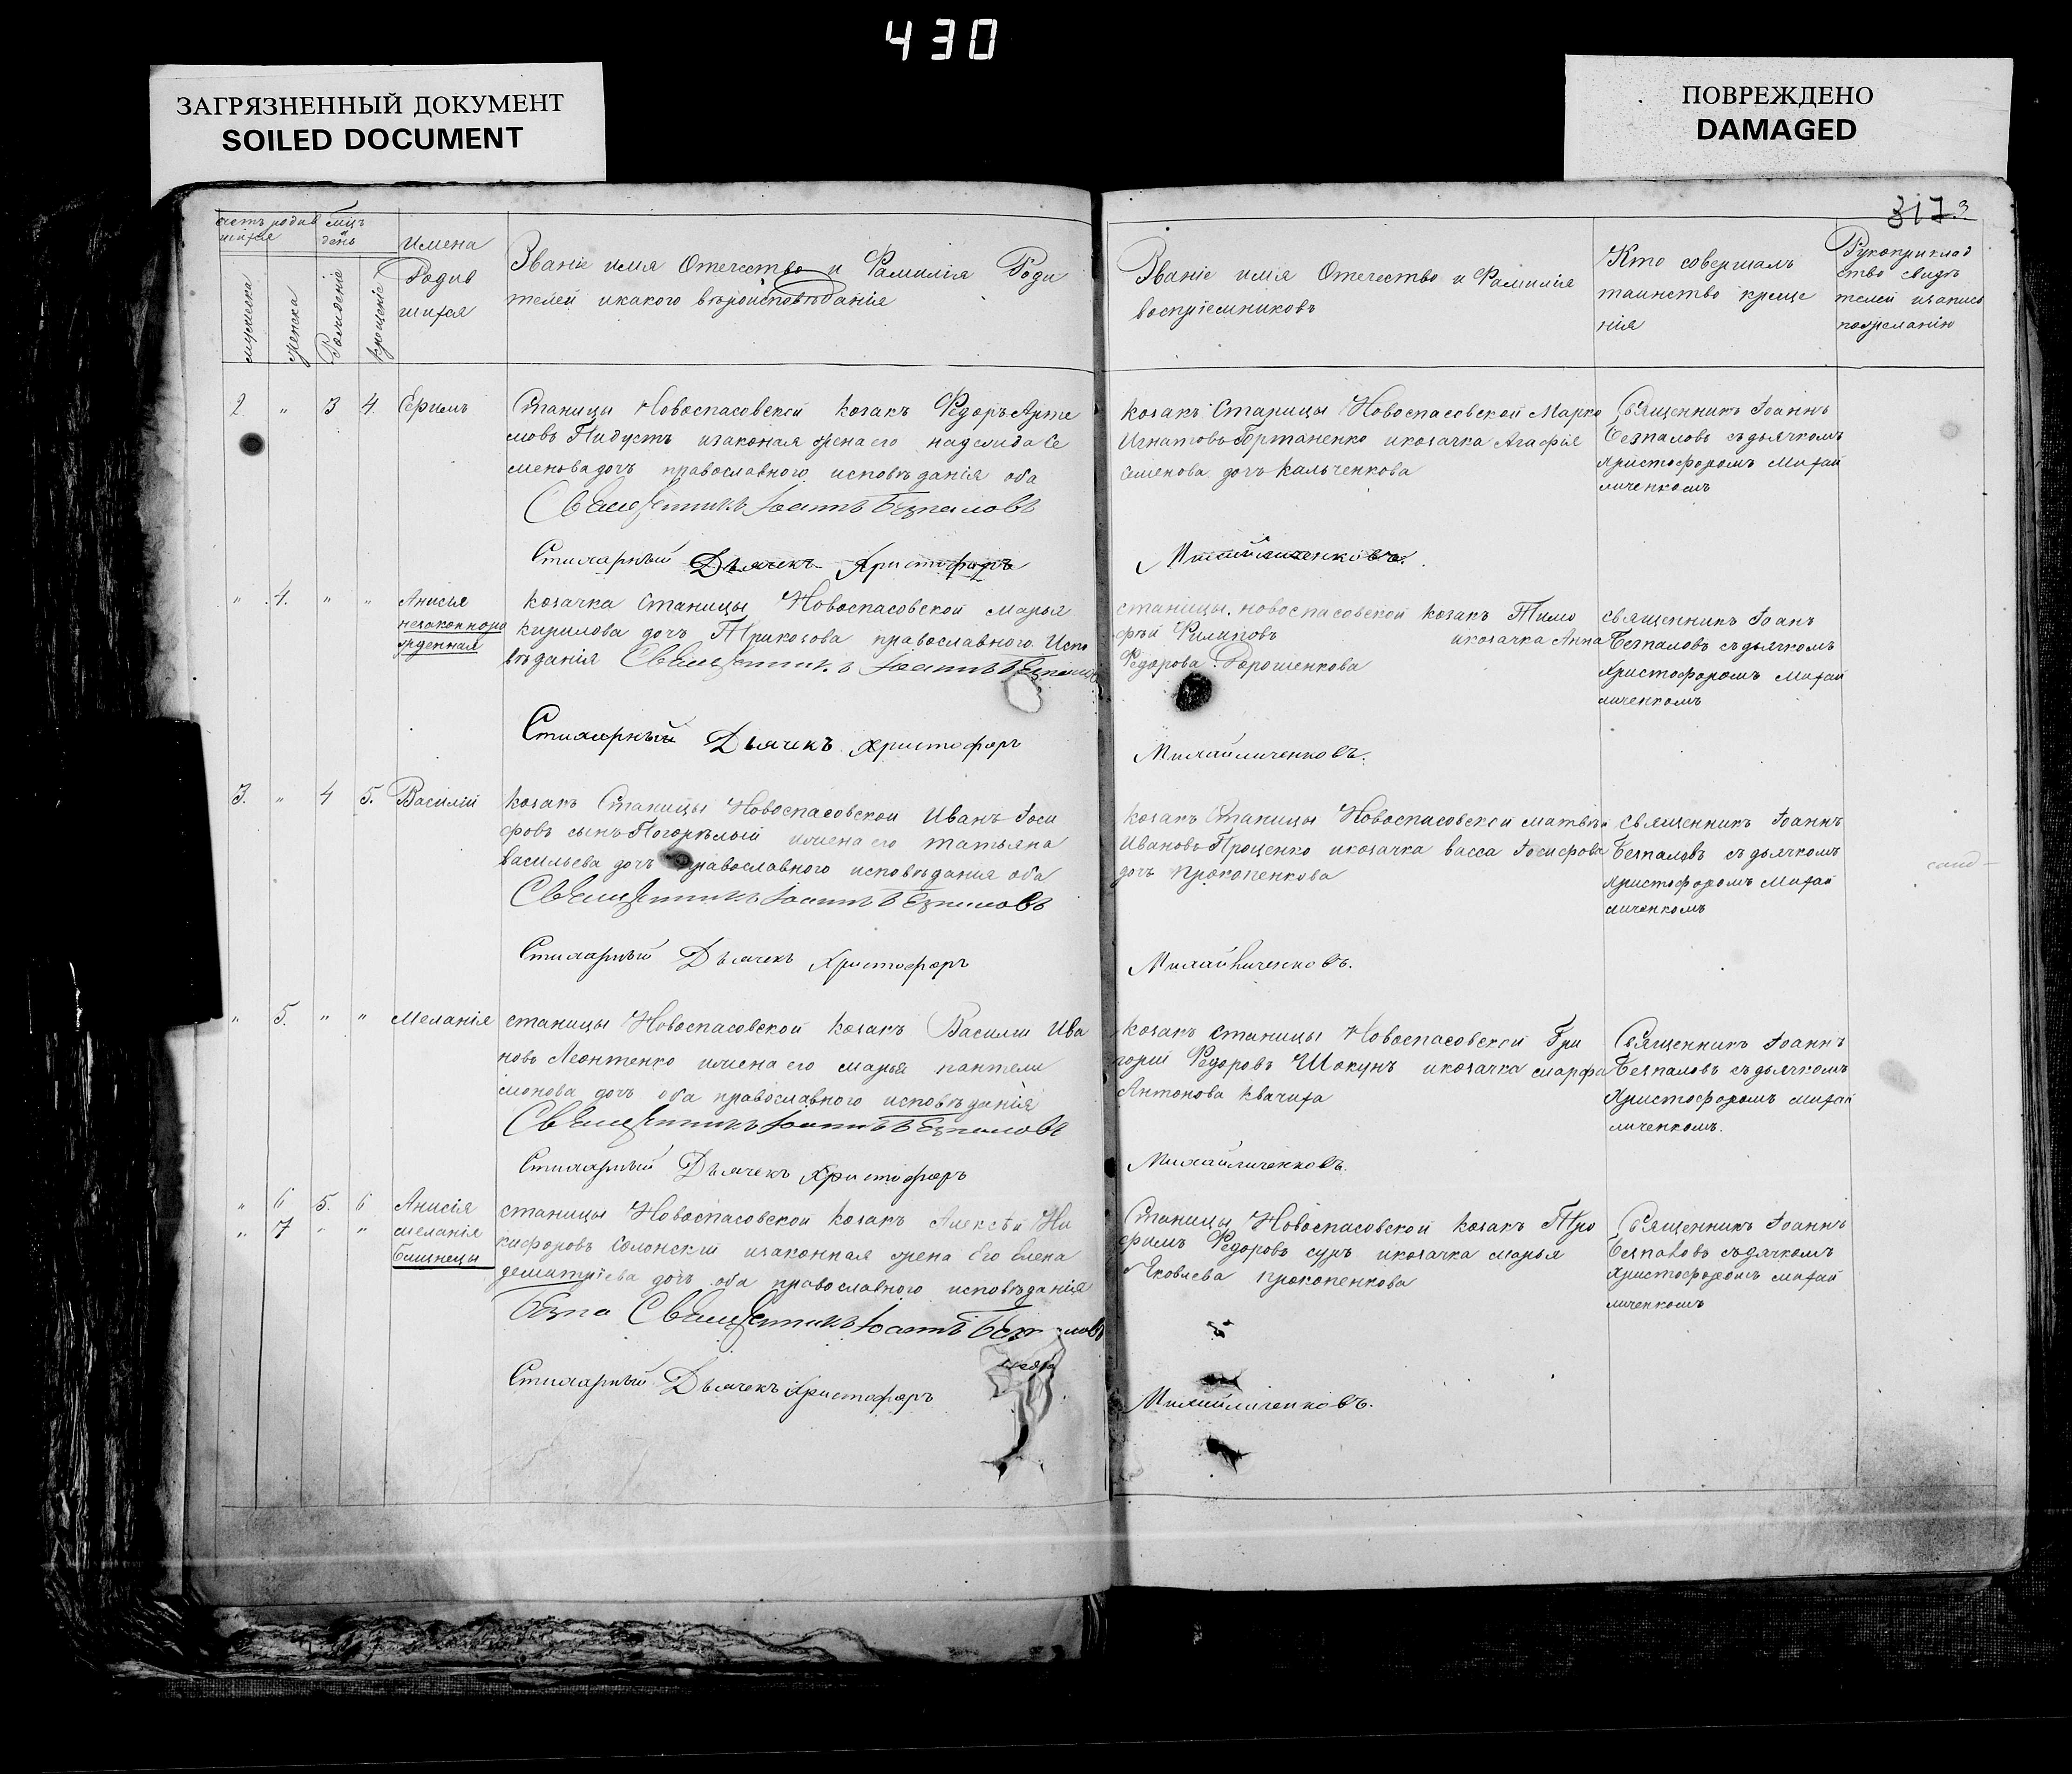 430
ЗАГРЯЗНЕННЫЙ ДОКУМЕНТ
SOILED DOCUMENT
ПОВРЕЖДЕНО
DAMAGED
317
3
счетъ родив
шихся
мцъ
день
мужеска
женска
Рожденіе
крещеніе
Имена
Родив
шихся
Званіе имя Отечество и Фамилія Роди
телей икакого вѣроисповѣданія
Званіе имя Отечество и Фамилія
воспріемниковъ
Кто совершалъ
таинство креще
нія
Рукоприклад
ство свидѣ
телей изаписи
пожеланію
2 " 3 4 Ефимъ
Станицы Новоспасовской козакъ Федоръ Арте
мовъ Пидустъ изаконая жена его надежда Се
менова дочь православного исповѣданія оба
Священникъ Іоаннъ Безпаловъ
Стихарный Дьячекъ Христофоръ
козакъ Станицы Новоспасовской Марко
Игнатовъ Бртаненко икозачка Агафія
Семенова дочь Кальченкова
Михайличенковъ.
Священникъ Іоаннъ
Безпаловъ съдьячкомъ
Христофоромъ Михай
личенкомъ
" 4. " " Анисья
незаконноро
жденная
козачка Станицы Новоспасовской Марья
Кирилова дочь Трикозова православного Испо
вѣданія Священникъ Іоаннъ Безпаловъ
Стихарный Дьячекъ Христофоръ
станицы новоспасовской козакъ Тимо
фѣй Филиповъ икозачка Анна
Федорова Дорошенкова
Михайличенковъ.
священникъ Іоанъ
Безпаловъ съдьячкомъ
Христофоромъ Михай
личенкомъ
3. " 4 5. Василій
козакъ Станицы Новоспасовской Иванъ Іоси
фовъ сынъ Погорѣлый ижена его татьяна
васильева дочь православного исповѣдания оба
Священникъ Іоаннъ Безпаловъ
Стихарный Дьячекъ Христофоръ
козакъ Станицы Новоспасовской матвѣй
Ивановъ Проценко икозачка васса Іосифова
дочь Прокопенкова
Михайличенковъ.
священникъ Іоаннъ
Безпаловъ съдьячкомъ
Христофоромъ Михай
личенкомъ
" 5. " " Меланія
станицы Новоспасовской козакъ Василий Ива
новъ Леонтенко ижена его марья пантели
монова дочь оба православного исповѣданія
Священникъ Іоаннъ Безпаловъ
Стихарный Дьячекъ Христофоръ
козакъ станицы Новоспасовской Гри
горій Федоровъ Шокунъ икозачка марфа
Антонова Квачиха
Михайличенковъ.
Священникъ Іоаннъ
Безпаловъ съдьячкомъ
Христофоромъ михай
личенкомъ.
" 6 5. 6 Анисія
" 7 " " меланія
близнецы
станицы Новоспасовской козакъ Алексѣй Ни
кифоровъ Солонскій изаконная жена Его Елена
демитріева дочь оба православного исповѣданія
Безпа Священникъ Іоаннъ Безпаловъ
Стихарный Дьячекъ Христофоръ
Станицы Новоспасовской козакъ Тро
фимъ Федоровъ сунъ икозачка марья
Яковлева прокопенкова
Михайличенковъ.
Священникъ Іоаннъ
Безпаловъ съдячкомъ
Христофоромъ михай
личенкомъ